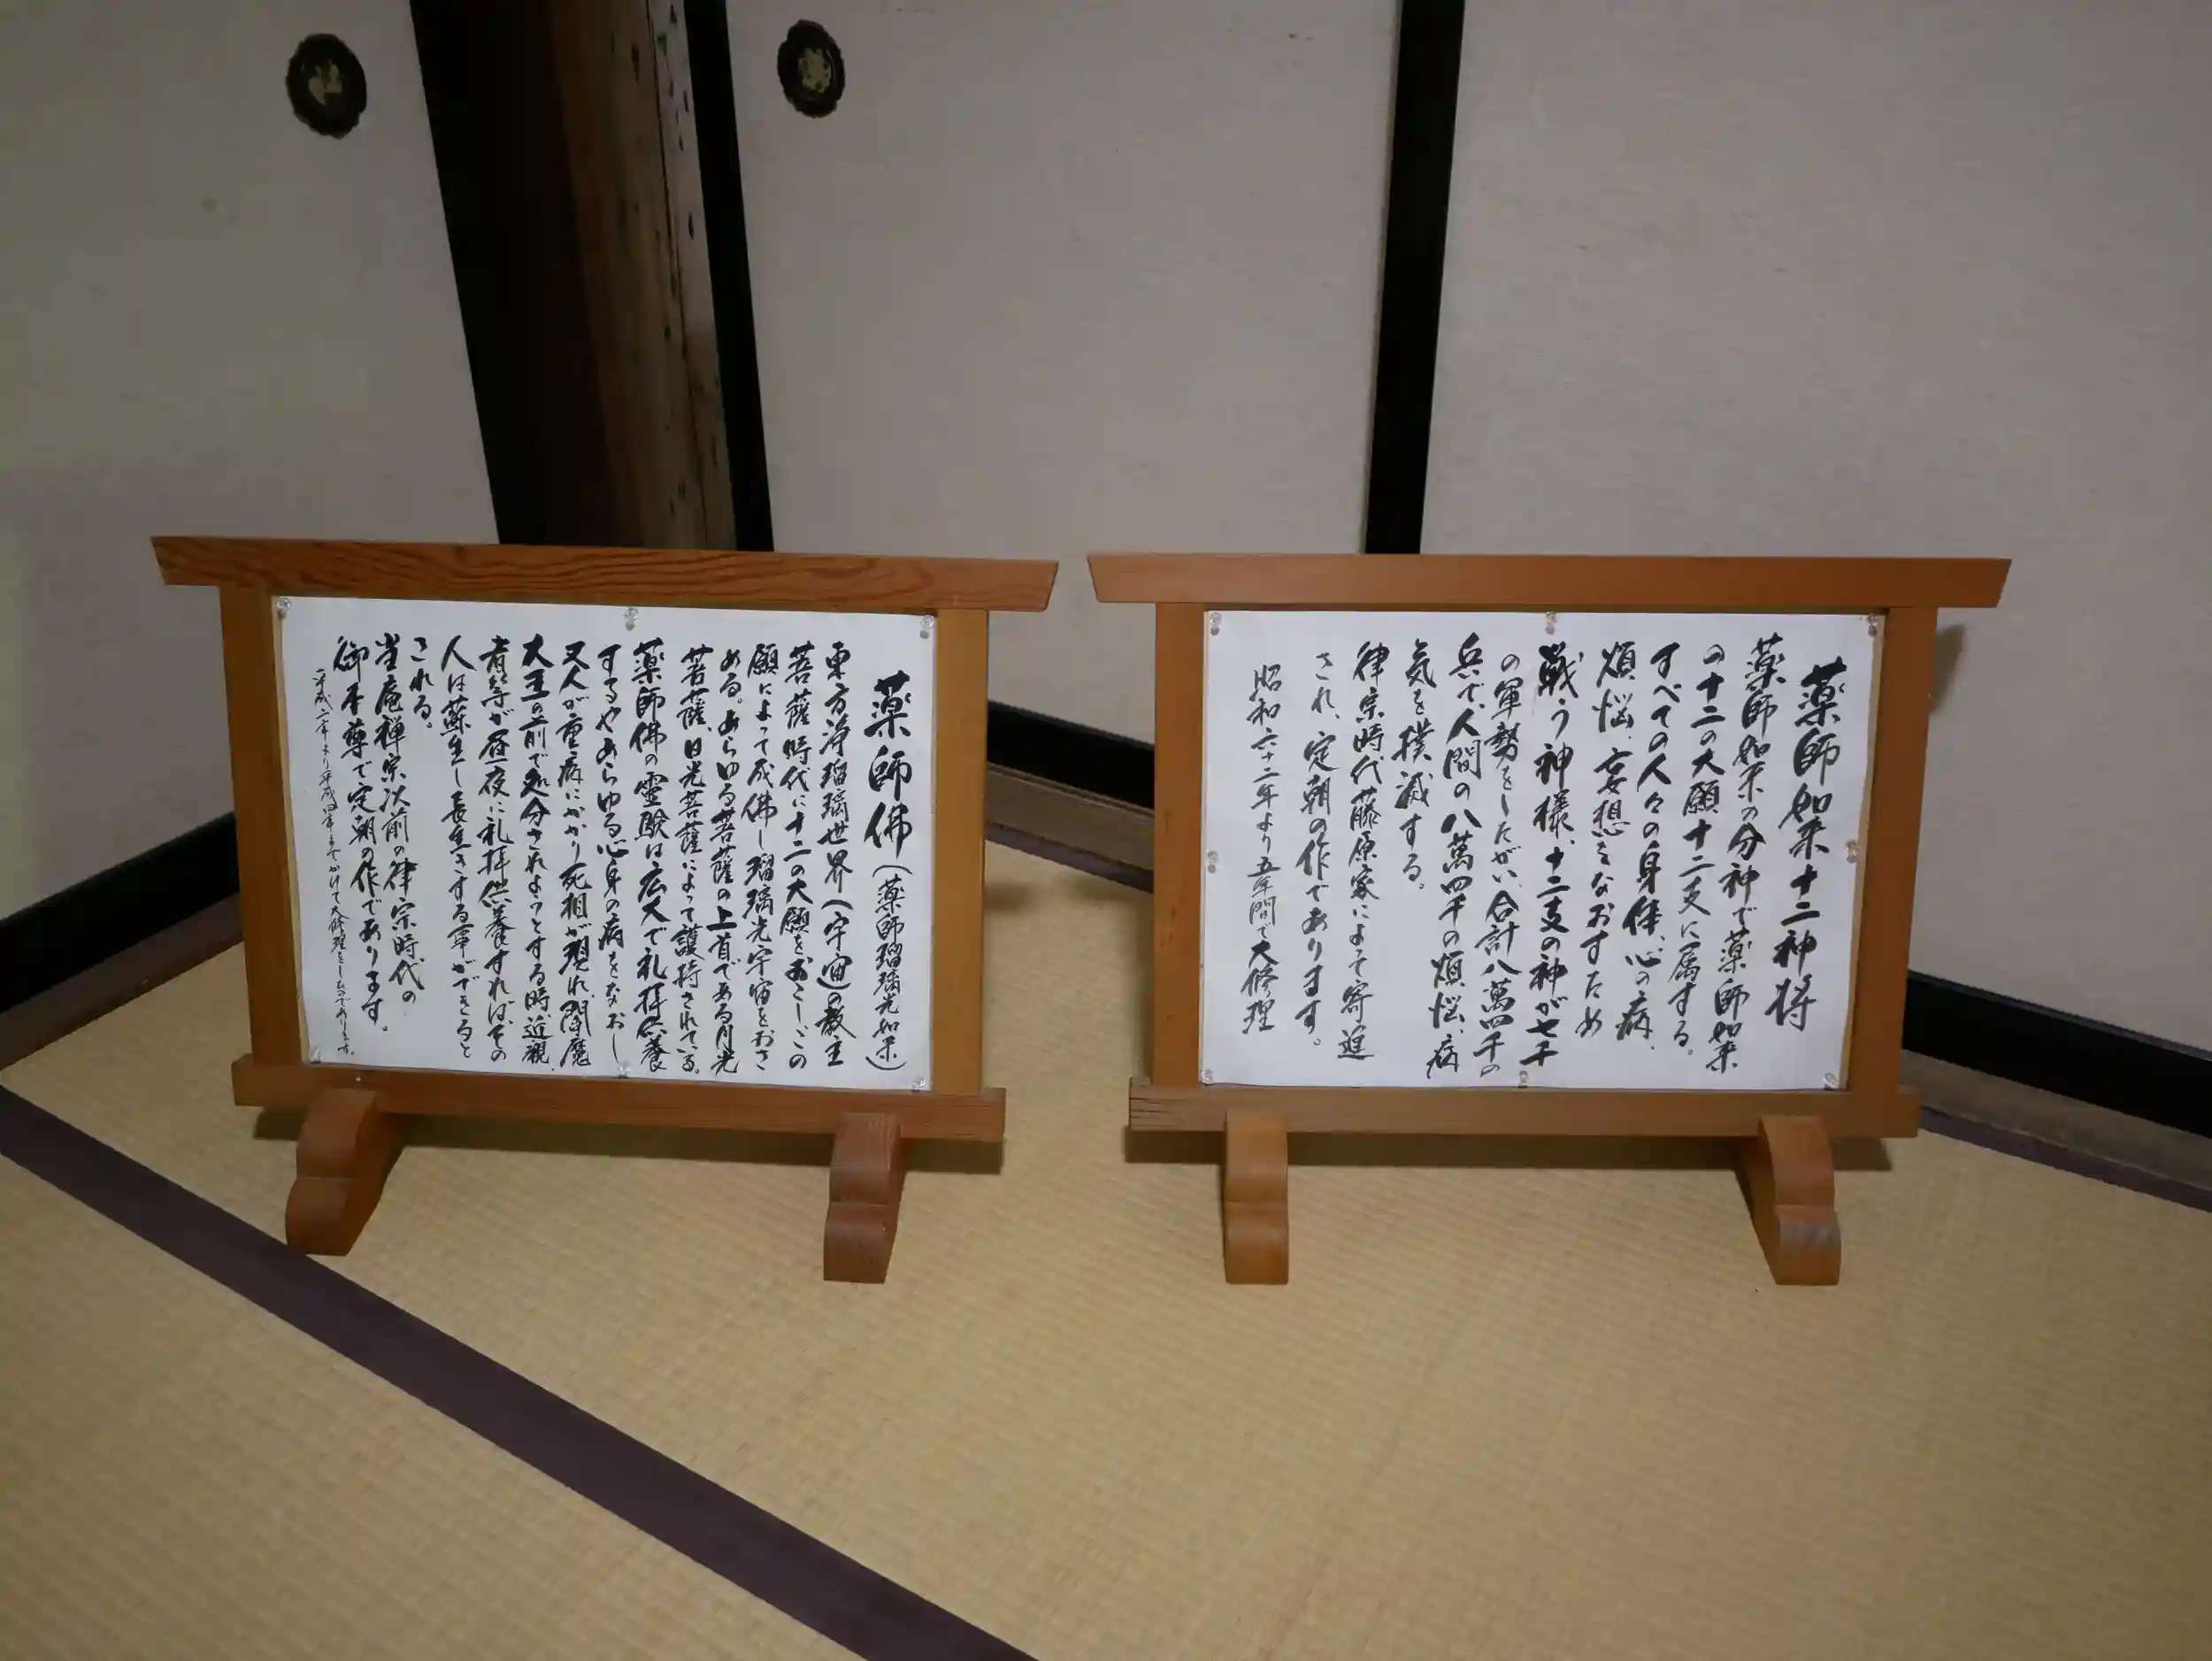 薬師如来十二神将
薬師如来の分神で薬師如来
の十二の大願十二支に属する。
すべての人々の身体、心の病、
煩悩、妄想をなおすため
戦う神様、十二支の神が七千
の軍勢をしたがい、合計八萬四千の
兵で、人間の八萬四千の煩悩、病
気を撲滅する。
律宗時代藤原家によって寄進
され、定朝の作であります。
昭和六十二年より五年間で大修理
薬師佛(薬師瑠璃光如来)
東方浄瑠璃世界(宇宙)の教主
菩薩時代に十二の大願をおこしこの
願によって成佛し瑠璃光宇宙をおさ
める。あらゆる菩薩の上首である月光
菩薩、日光菩薩によって護持されている。
薬師佛の霊験は広大で礼拝供養
するやあらゆる心身の病をなおし
又人が重病にかかり死相が現れ、閻魔
大王の前で処分されようとする時、近親
者等が昼夜に礼拝供養すればその
人は蘇生し長生きする事ができると
される。
当庵禅宗次前の律宗時代の
御本尊で定朝の作であります。
平成二年より平成四年までかけて大修理をしたのであります。